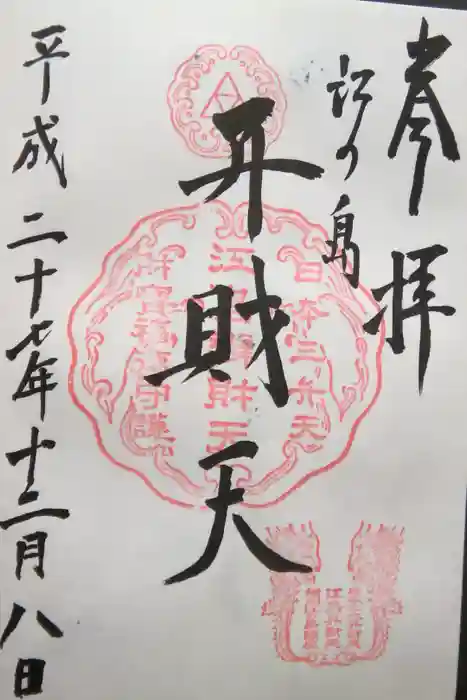 奉拝
江の島
弁財天
平成二十七年十二月八日
日本三弁天
江島弁財天
財宝福徳守護